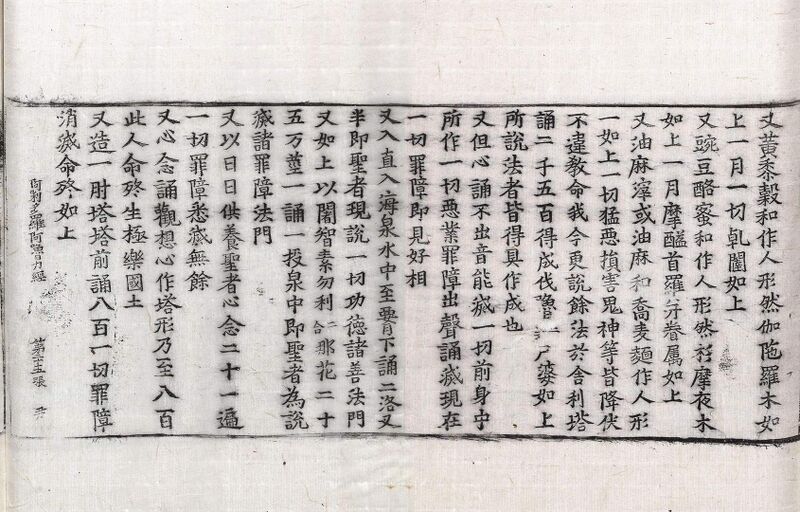 又黃黍穀和作人形然伽陁羅木如
上一月一切乹闥如上
又豌豆酪蜜和作人形然摩夜木
如上一月摩醯首羅幷眷属如上
又油麻滓或油麻和喬麦麵作人形
一如上一切猛悪損害鬼神等皆降伏
不違教命我今更說餘法於舍利塔
誦二千五百得成伐嚕婆如上
所說法者皆得具作成也
又但心誦不出音能滅一切前身中
所作一切悪業罪障出聲誦滅現在
一切罪障即見好相
又入直入海泉水中至下誦二洛叉
半即聖者現說一切功德諸善法門
又如上以闍智素勿利二合那花二十
五万莖一誦一投泉中即聖者為說
滅諸罪障法門
又以日日供養聖者心念二十一遍
一切罪障悉滅無餘
又心念誦觀想心作塔形乃至八百
此人命終生極樂國土
又造一肘塔塔前誦八百一切罪障
消滅命終如上
阿吒多羅阿嚕力經 第十五張